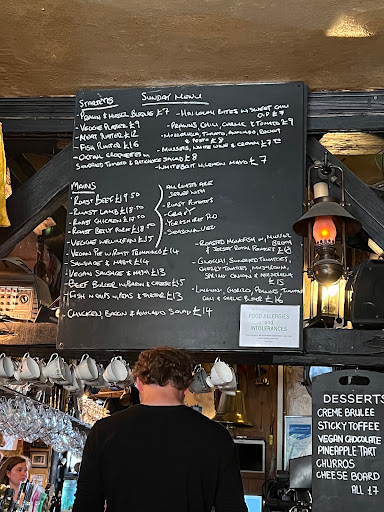 SUNDAY MENU
STARTERS
- PRAWN & £7
- VEGGIE PLATTER £9
- MEAT PLATTER £12
- FISH PLATTER £16
SUNDRIED TOMATO & SALAD £8
- HALLOUMI BITES W SWEET CHILLI DIP £8
- PRAWNS CHILLI, GARLIC & TOMATO £9
- MOZZARELLA, TOMATO, AVOCADO,
& £8
- MUSSELS, WHITE WINE & CREAM £7
- WHITEBAIT W LEMON MAYO £7
MAINS
- ROAST BEEF £19.50
- ROAST LAMB £18.50
- ROAST CHICKEN £17.50
- ROAST BELLY PORK £18.50
- VEGGIE WELLINGTON £15
ALL ROASTS ARE
SERVED WITH
- ROAST POTATOES
- GRAVY
- YORKSHIRE PUD
- SEASONAL VEG
- VEGAN PIE W ROAST TRIMMINGS £14
- SAUSAGE & MASH £14
- VEGAN SAUSAGE & MASH £13
- BEEF BURGER W BACON & CHEESE £15
- FISH N CHIPS W PEAS & TARTARE £13
- CHICKEN, BACON & AVOCADO SALAD £14
- ROASTED MONKFISH W
& £19
- GNOCCHI, SUNDRIED TOMATOES,
CHERRY TOMATOES, MUSHROOM,
SPRING ONION & MOZZARELLA
£15
- LINGUINI, CHORIZO, PRAWNS, TOMATO
& GARLIC £16
FOOD ALLERGIES
and
INTOLERANCES
DESSERTS
CREME BRULEE
STICKY TOFFEE
VEGAN CHOCOLATE
PINEAPPLE TART
CHURROS
CHEESE BOARD
ALL £7